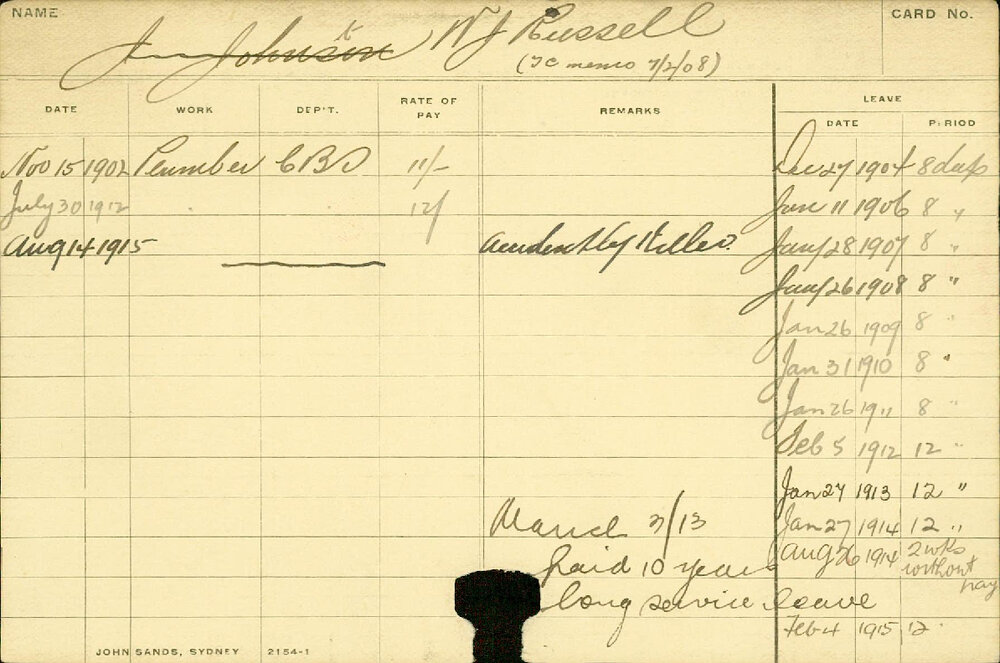 NAME
CARD No.
Johnston W J Russell
(TC memo 7/2/08)
DATE WORK DEP'T. RATE OF PAY REMARKS LEAVE
DATE PERIOD
Nov 15 1902 Plumber CBD 11/- Dec 27 1904 8 days
July 30 1912 " " 12/ Jan 11 1906 8 "
Aug 14 1915 Accidently Killed. Jany 28 1907 8 "
Jany 26 1908 8 "
Jan 26 1909 8 "
Jan 31 1910 8 "
Jan 26 1911 8 "
Feb 5 1912 12 "
Jan 27 1913 12 "
March 3/13 Jan 27 1914 12 "
paid 10 years Aug 26 1914 2 wks without pay
long service leave
Feb 4 1915 12 "
JOHN SANDS, SYDNEY 2154-1